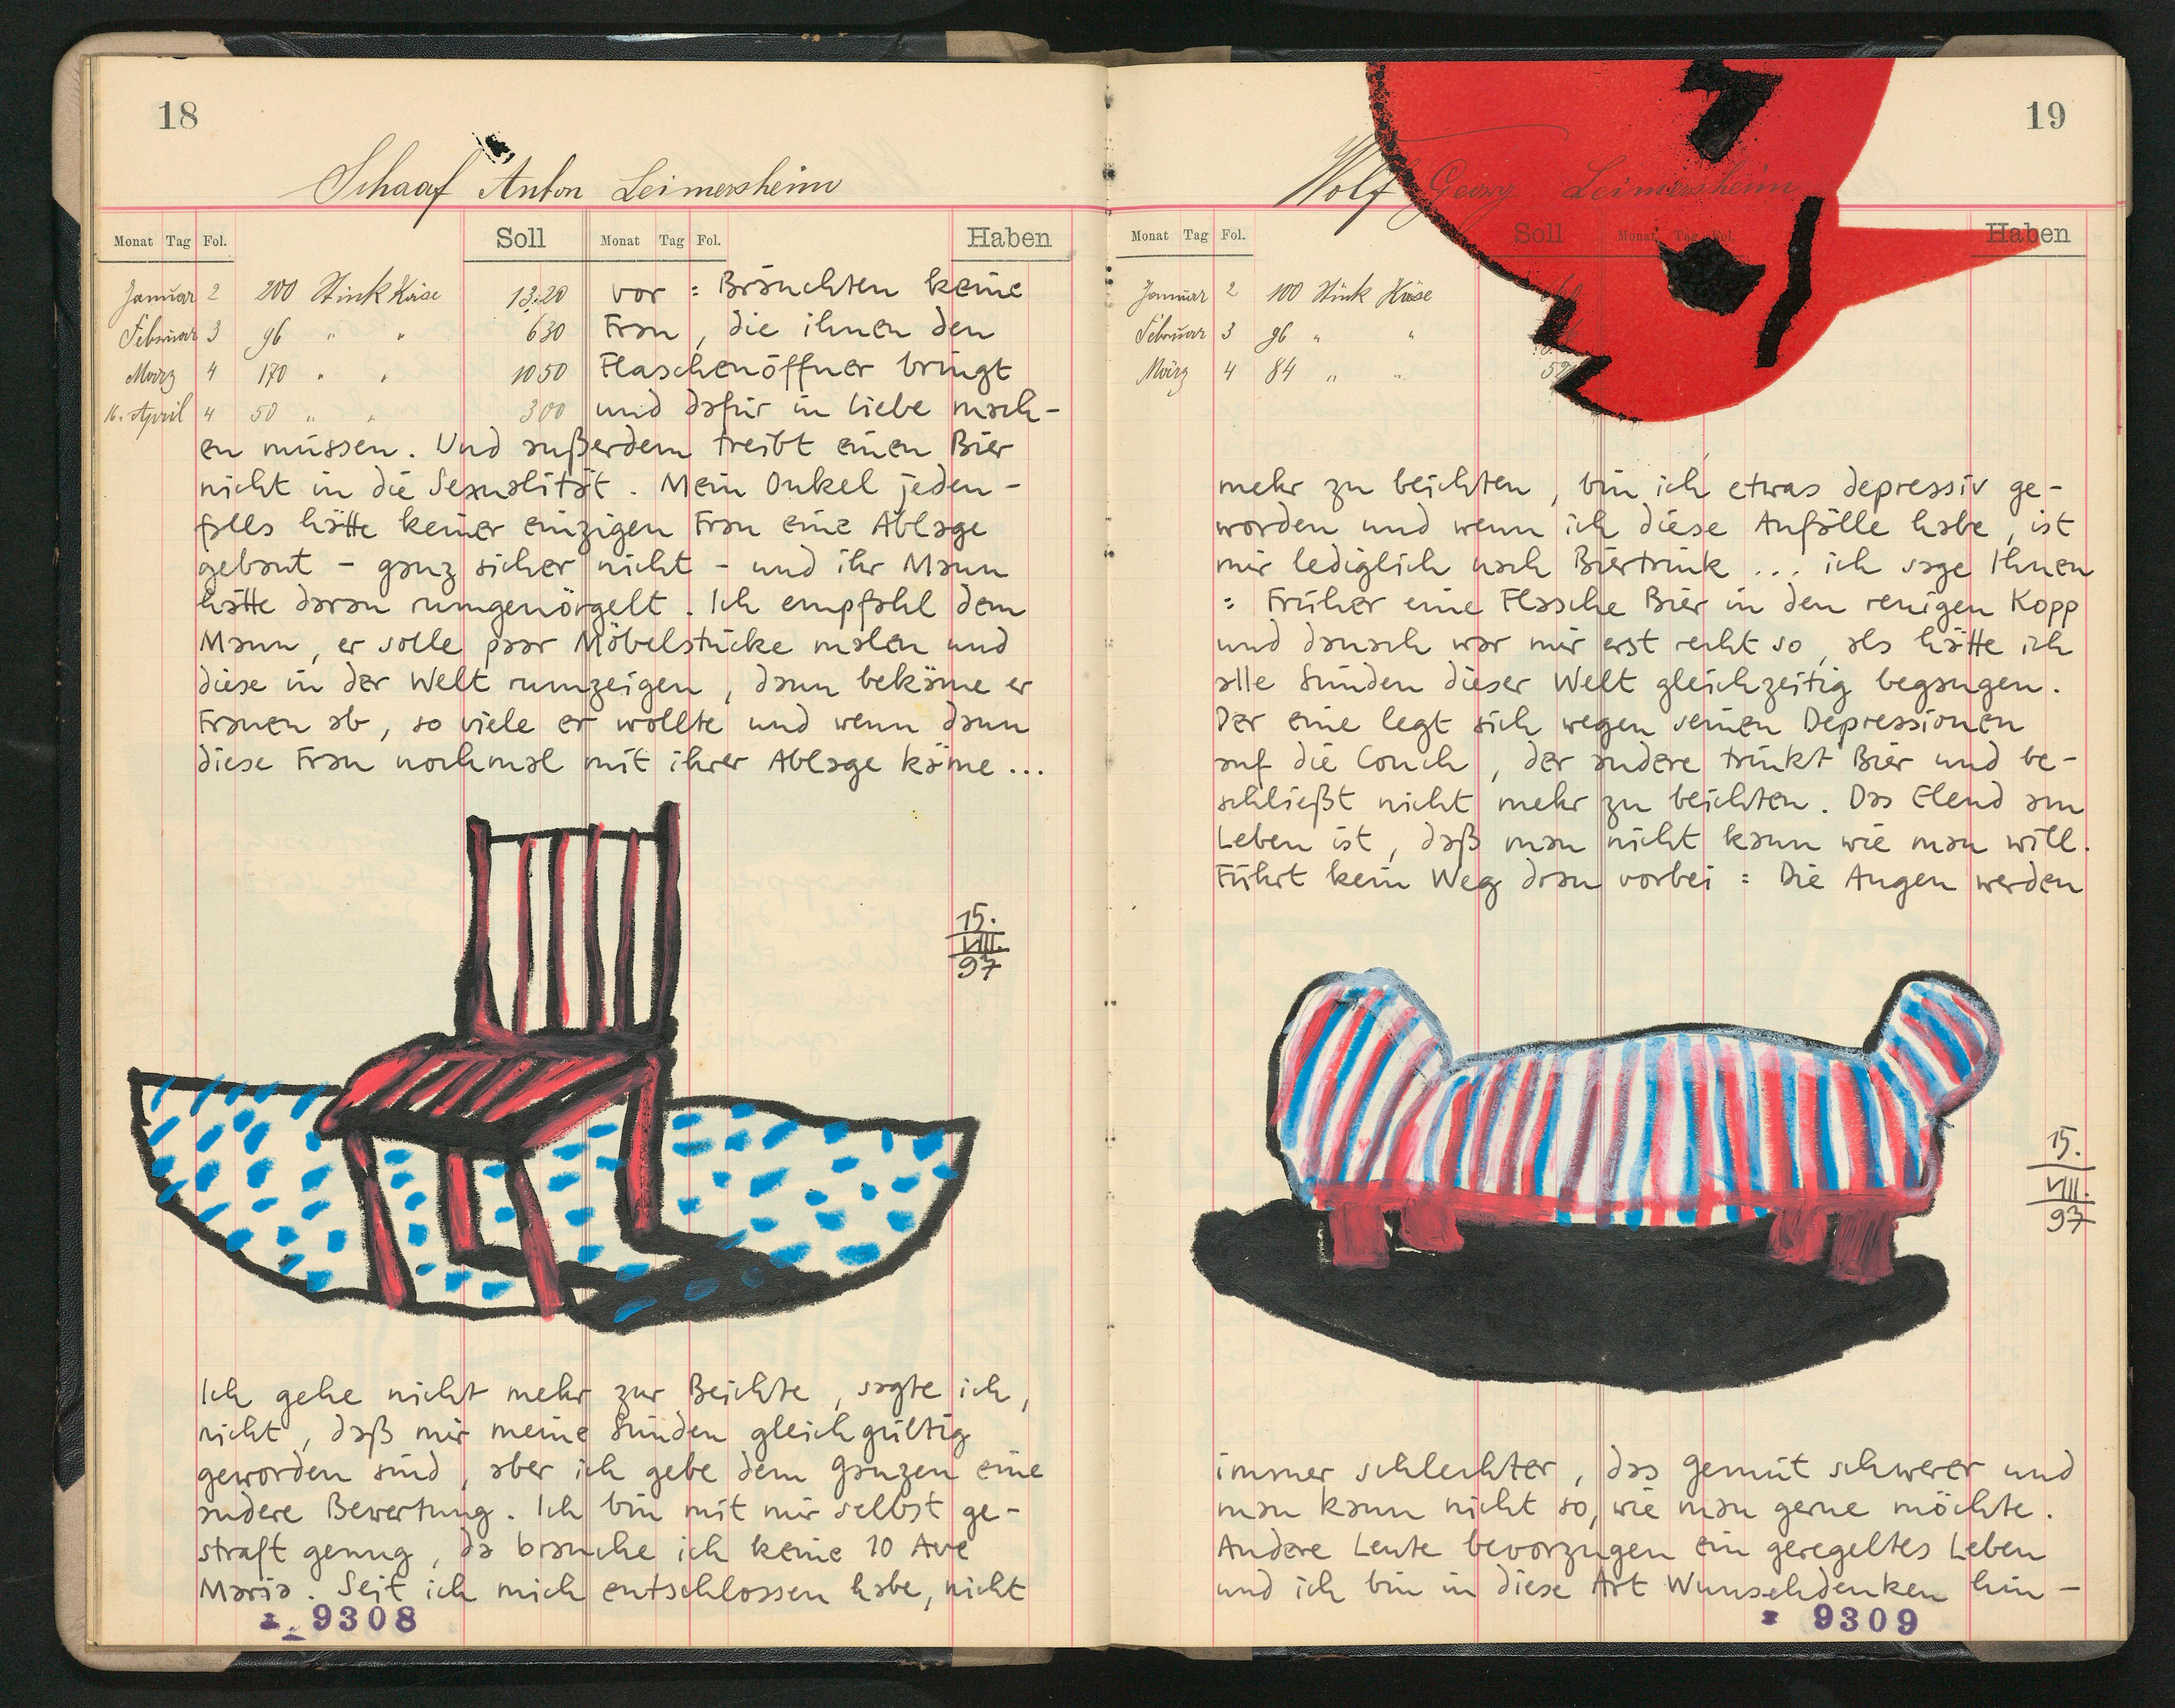 18
Schaaf Anton Leimersheim
Monat Tag Fol. Soll Monat Tag Fol. Haben
Januar 2 200 Stink Käse 13.20
Februar 3 96 " " 630
März 4 170 " " 1050
16. April 4 50 " " 300
vor : Bräuchten keine
Frau, die ihnen den
Flaschenöffner bringt
und dafür in Liebe mach-
en müssen. Und außerdem treibt einen Bier
nicht in die Sexualität. Mein Onkel jeden-
falls hätte keiner einzigen Frau eine Ablage
gebaut - ganz sicher nicht - und ihr Mann
hätte daran rumgenörgelt. Ich empfahl dem
Mann, er solle paar Möbelstücke malen und
diese in der Welt rumzeigen, dann bekäme er
Frauen ab, so viele er wollte und wenn dann
diese Frau nochmal mit ihrer Ablage käme ...
15.
VIII.
97
Ich gehe nicht mehr zur Beichte, sagte ich,
nicht, daß mir meine Sünden gleichgültig
geworden sind, aber ich gebe dem ganzen eine
andere Bewertung. Ich bin mit mir selbst ge-
straft genug, da brauche ich keine 10 Ave
Maria. Seit ich mich entschlossen habe, nicht
9308
19
Wolf Georg Leimersheim
Monat Tag Fol. Soll Monat Tag Fol. Haben
Januar 2 100 Stink Käse
Februar 3 96 " "
März 4 84 " "
mehr zu beichten, bin ich etwas depressiv ge-
worden und wenn ich diese Anfälle habe, ist
mir lediglich nach Biertrink ... ich sage Ihnen
: Früher eine Flasche Bier in den reuigen Kopp
und danach war mir erst recht so, als hätte ich
alle Sünden dieser Welt gleichzeitig begangen.
Der eine legt sich wegen seinen Depressionen
auf die Couch, der andere trinkt Bier und be-
schließt nicht mehr zu beichten. Das Elend am
Leben ist, daß man nicht kann wie man will.
Führt kein Weg dran vorbei : Die Augen werden
15.
VIII.
97
immer schlechter, das Gemüt schwerer und
man kann nicht so, wie man gerne möchte.
Andere Leute bevorzugen ein geregeltes Leben
und ich bin in diese Art Wunschdenken hin-
9309